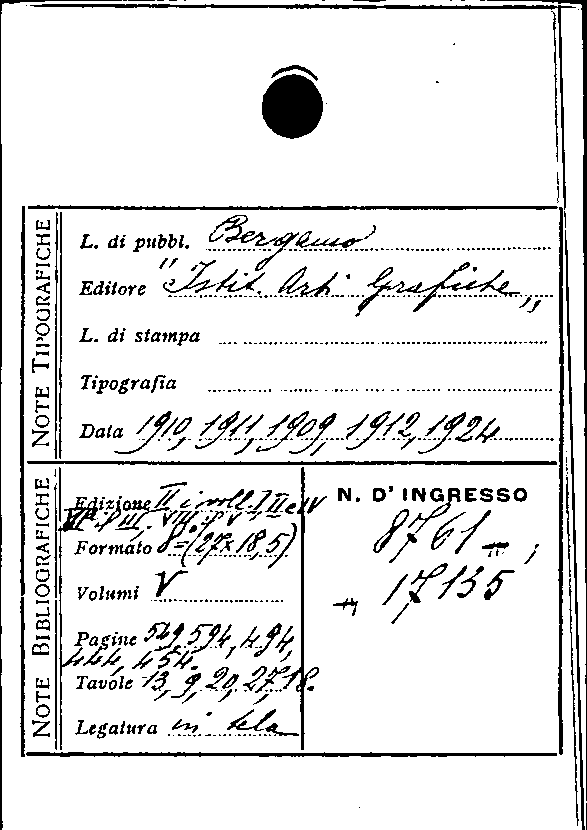 NOTE TIPOGRAFICHE
L. di pubbl. Bergamo
Editore "Istit. Arti Grafiche,,
L. di stampa
Tipografia
Data 1910, 1911, 1909, 1912, 1924
NOTE BIBLIOGRAFICHE
Edizione II i voll. I II e IV
VIª il III, VIIIª il V
Formato 8º = (27x18,5)
Volumi V
Pagine 549, 594, 494,
444, 454.
Tavole 13, 9, 20, 27, 18.
Legatura in tela
N. D' INGRESSO
8761 = ;
= 17135